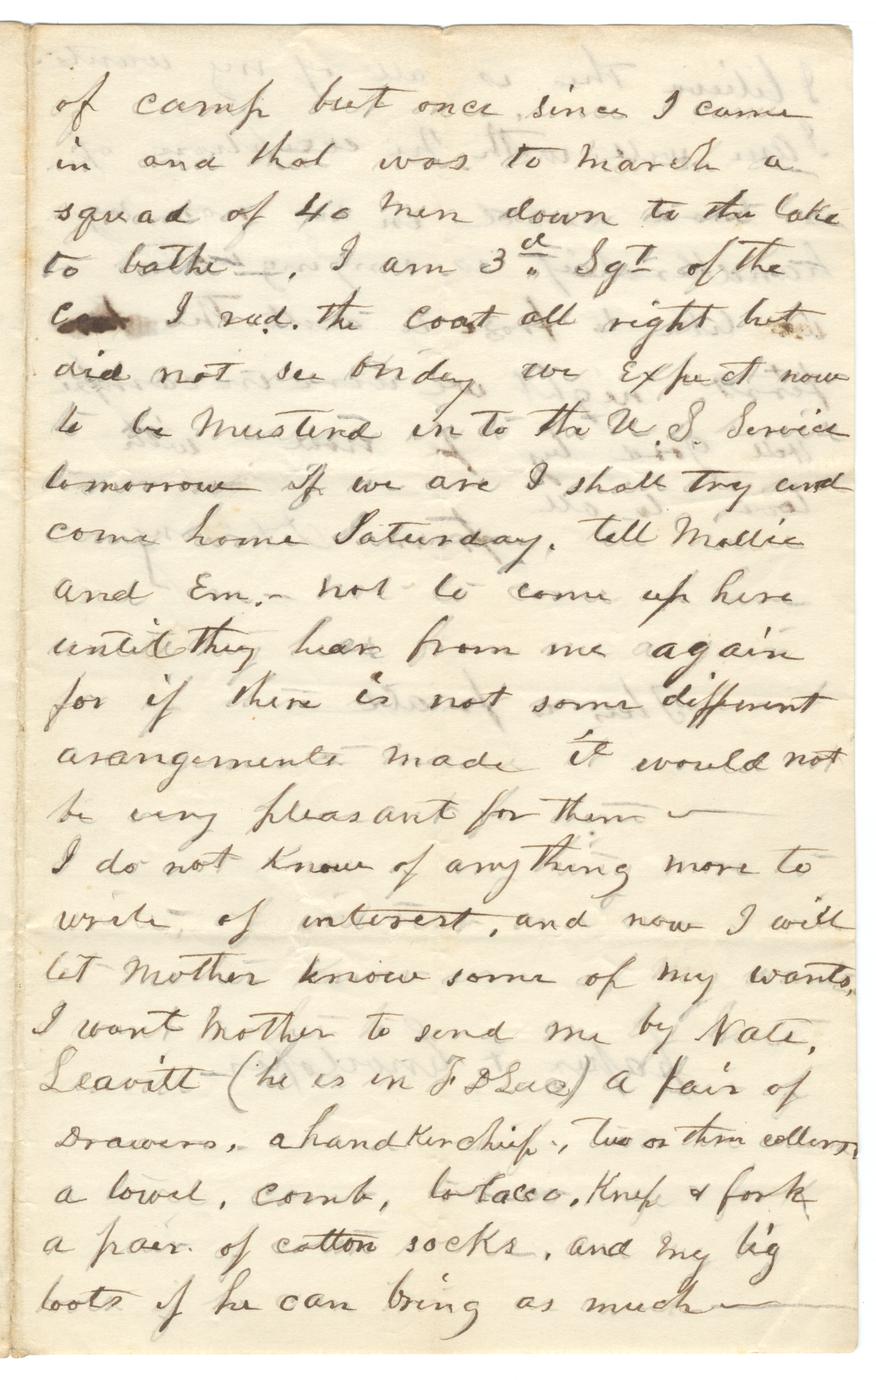 of camp but once since I came
in and that was to march a
squad of 40 men down to the lake
to bathe —. I am 3d Sgt of the
Co. I recd. the coat all right but
did not see Briday we Expect now
to be Musterd in to the U.S. Service
tomorrow If we are I shall try and
come home Saturday. tell Mollie
and Em.- not to come up here
until they hear from me again
for if there is not some different
arangements made it would not
be very pleasant for them —
I do not Know of anything more to
write of interest, and now I will
let Mother know some of my wants.
I want Mother to send me by Nate.
Leavitt (he is in F D Lac) a pair of
Drawers, a handKerchief, two or three collers
a towel, comb, tobacco, Knif & fork
a pair of cotton socks, and my big
boots if he can bring as much —